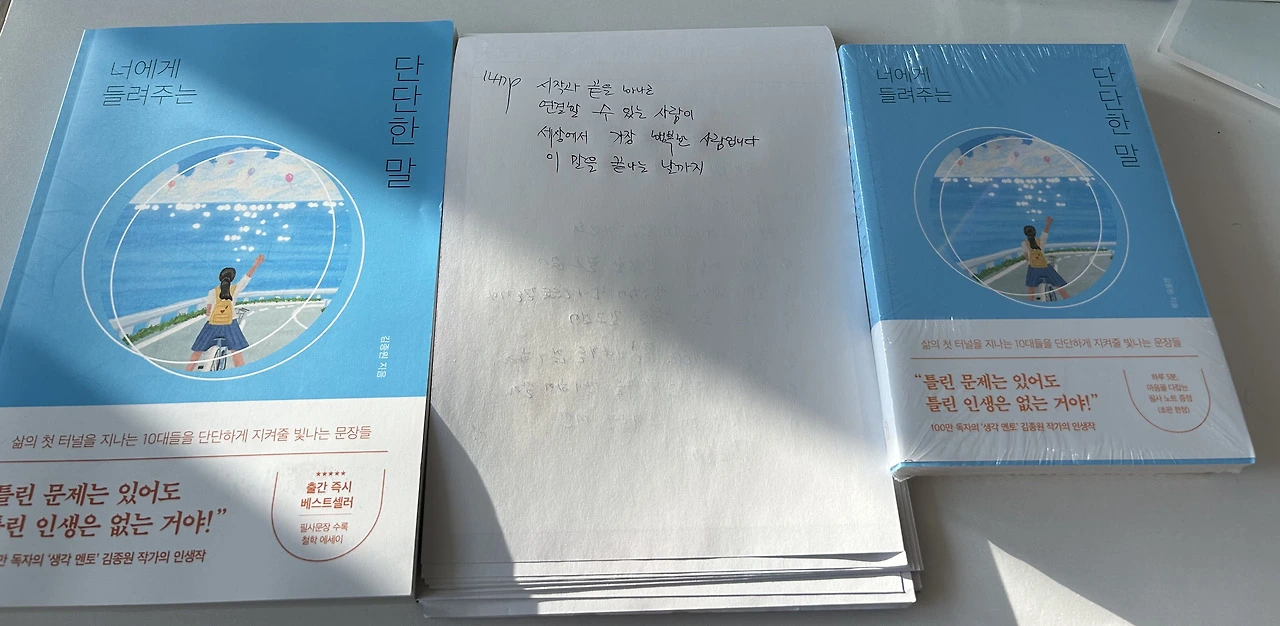 너에게
들려주는
단단한 말
김종원 지음
삶의 첫 터널을 지나는 10대들을 단단하게 지켜줄 빛나는 문장들
틀린 문제는 있어도
틀린 인생은 없는 거야!”
만 독자의 ‘생각 멘토’ 김종원 작가의 인생작
★★★★★
출간 즉시
베스트셀러
필사문장 수록
철학 에세이
147p
시작과 끝을 하나로
연결할 수 있는 사람이
세상에서 가장 행복한 사람입니다
이 말을 끝나는 날까지
너에게
들려주는
단단한 말
김종원 지음
삶의 첫 터널을 지나는 10대들을 단단하게 지켜줄 빛나는 문장들
“틀린 문제는 있어도
틀린 인생은 없는 거야!”
100만 독자의 ‘생각 멘토’ 김종원 작가의 인생작
하루 5분,
마음을 다잡는
필사 노트 증정
(초판 한정)